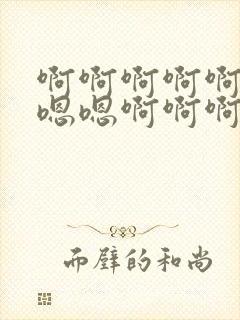 啊啊啊啊啊
嗯嗯啊啊啊
而壁的和尚